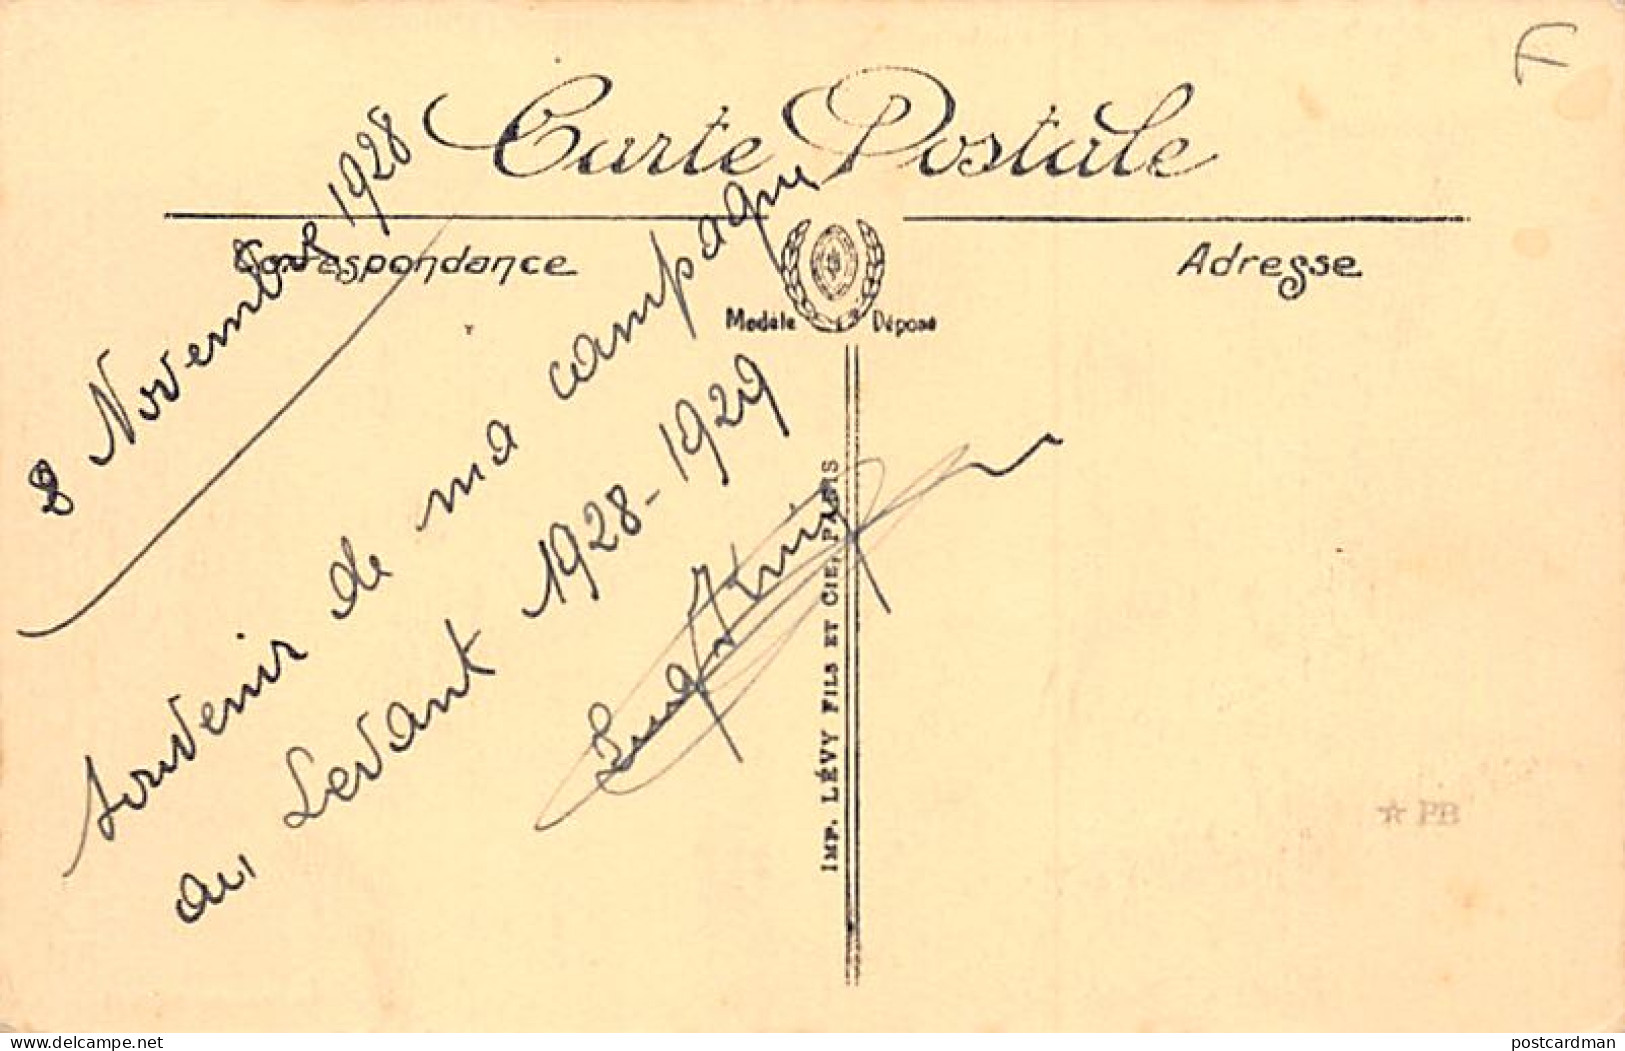 F
Carte Postale
Correspondance
Adresse
Modèle Déposé
8 Novembre 1928
Souvenir de ma campagne
au Levant 1928-1929
IMP. LÉVY FILS ET CIE, PARIS
☆ PB
www.delcampe.net
postcardman